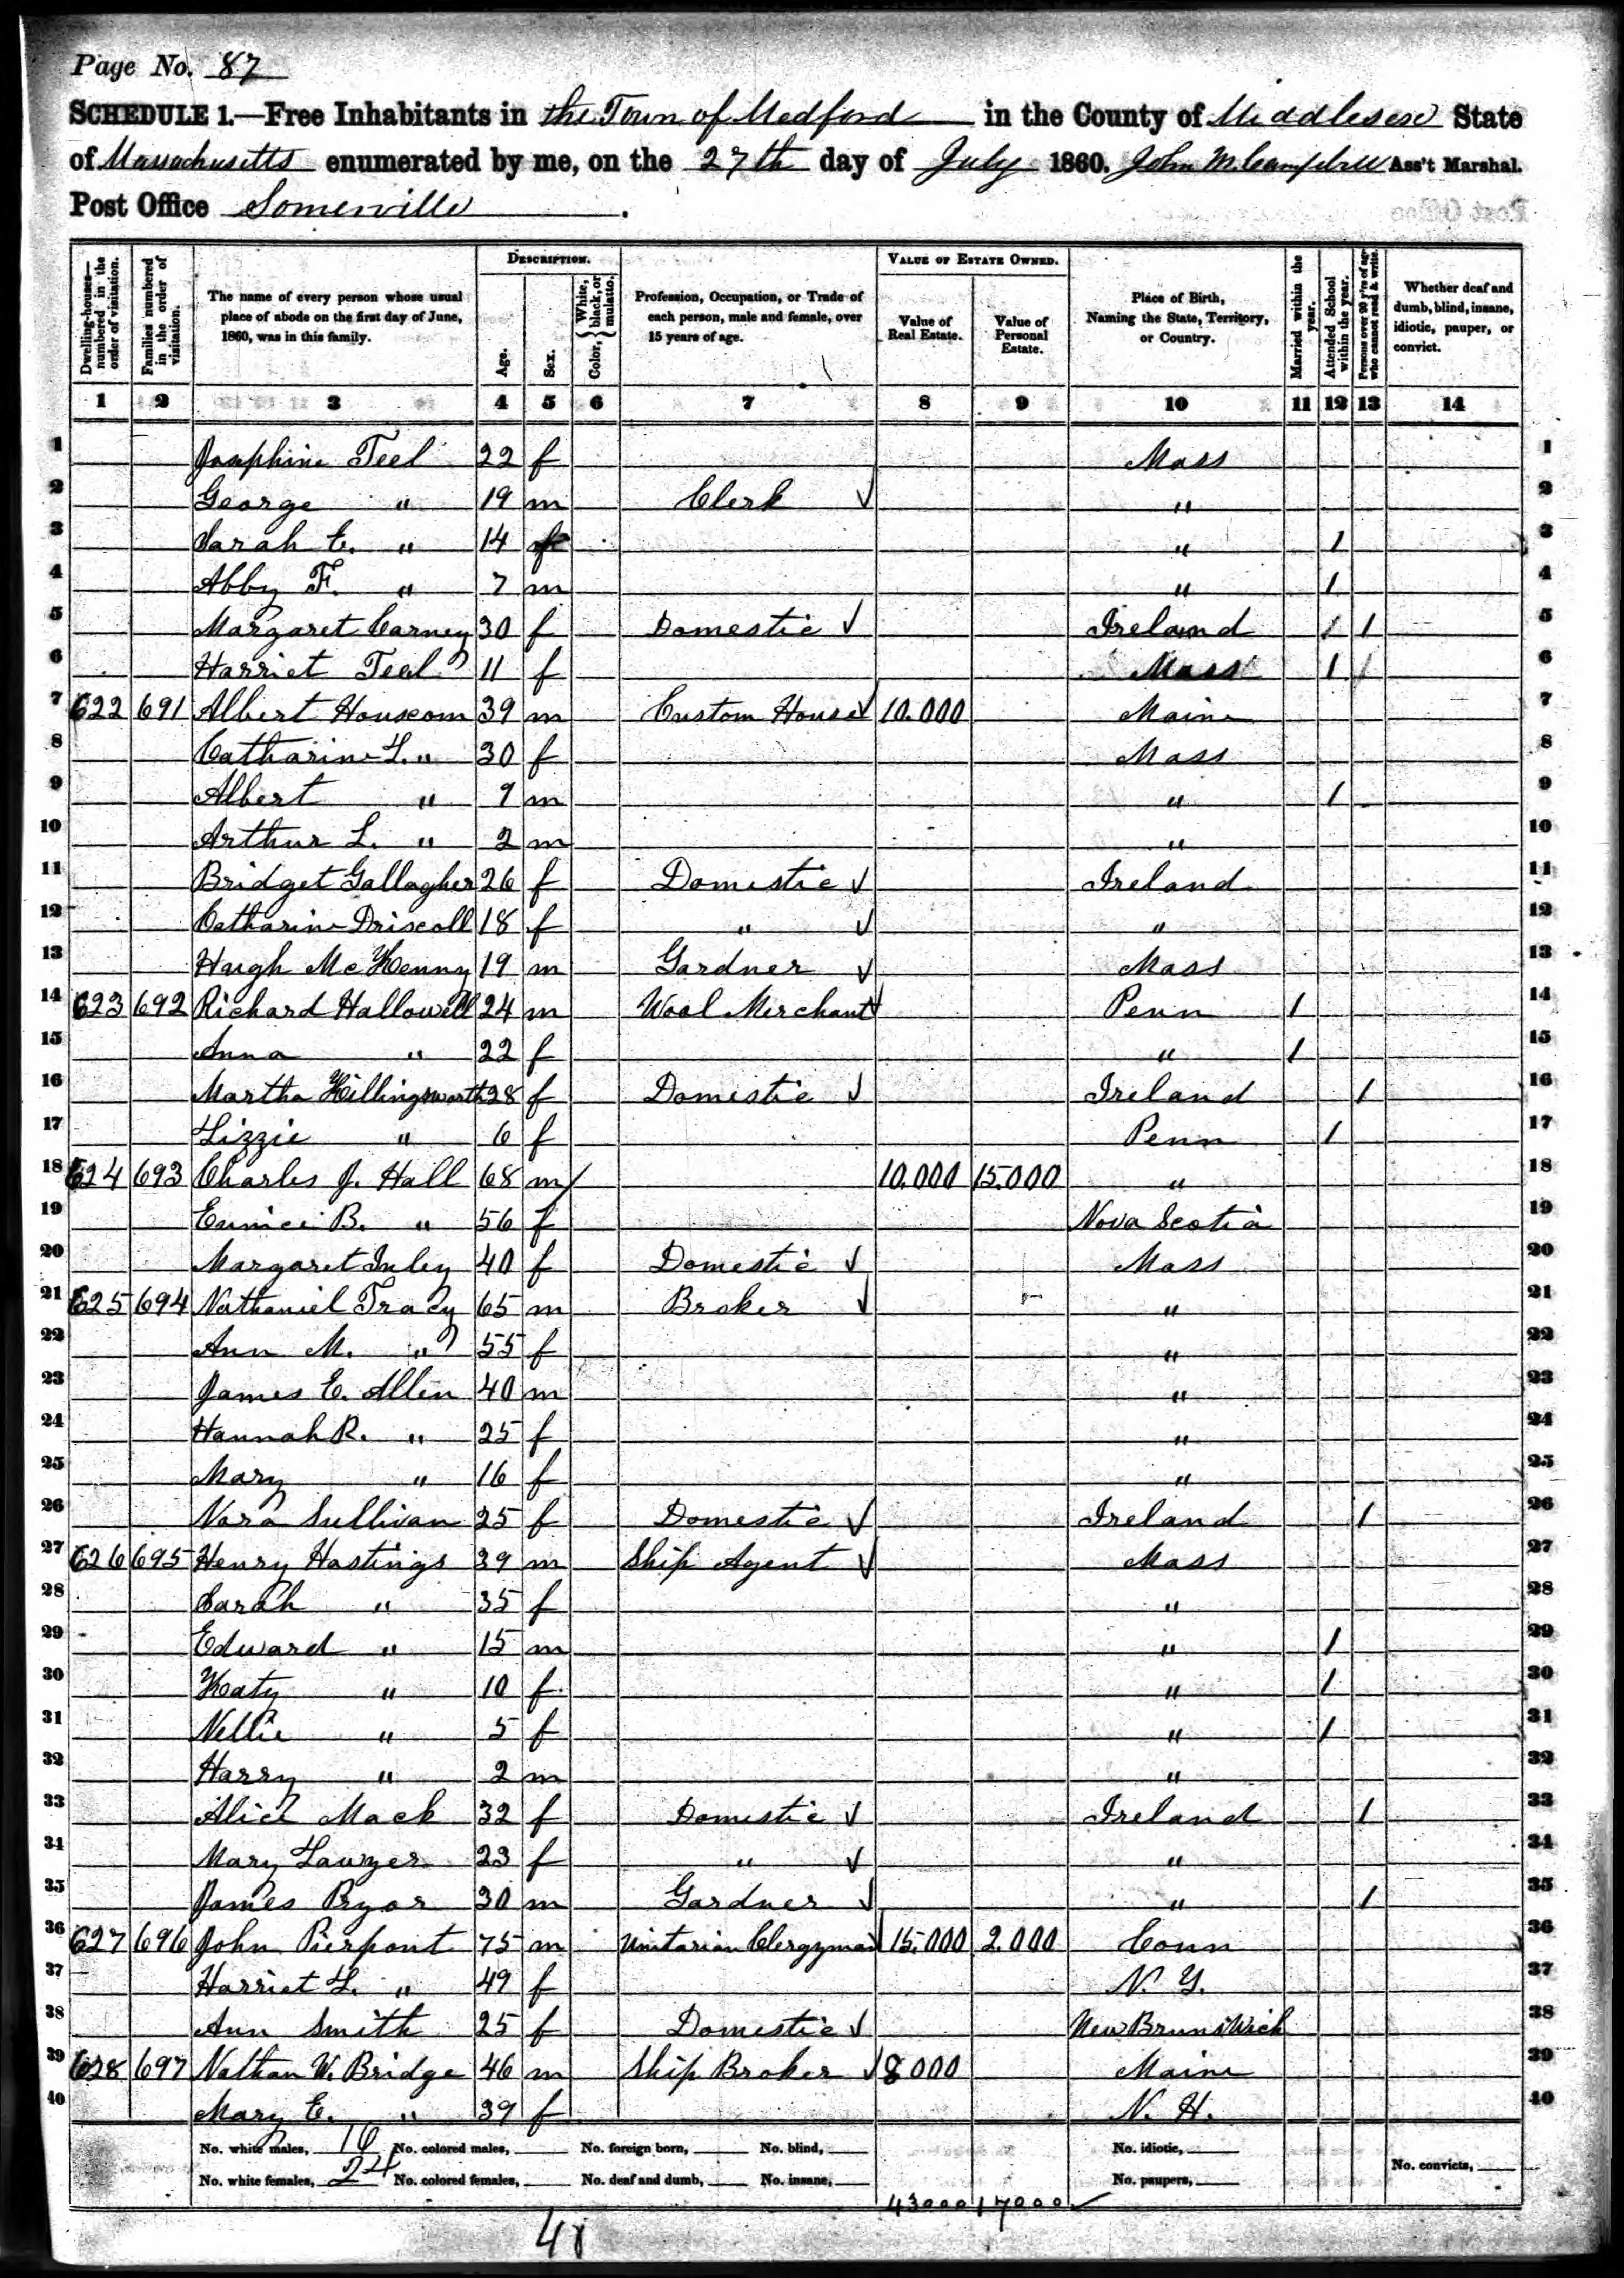 Page No. 87
SCHEDULE 1.—Free Inhabitants in the Town of Medford in the County of Middlesex State
of Massachusetts enumerated by me, on the 27th day of July 1860. John M. Campbell Ass't Marshal.
Post Office Somerville.
Dwelling-houses—numbered in the order of visitation. Families numbered in the order of visitation. The name of every person whose usual place of abode on the first day of June, 1860, was in this family. DESCRIPTION. Age. Sex. Color, { White, black, or mulatto. Profession, Occupation, or Trade of each person, male and female, over 15 years of age. VALUE OF ESTATE OWNED. Value of Real Estate. Value of Personal Estate. Place of Birth, Naming the State, Territory, or Country. Married within the year. Attended School within the year. Persons over 20 y'rs of age who cannot read & write. Whether deaf and dumb, blind, insane, idiotic, pauper, or convict.
1 2 3 4 5 6 7 8 9 10 11 12 13 14
1 Josephine Teel 22 f Mass 1
2 George " 19 m Clerk " 2
3 Sarah E. " 14 f " / 3
4 Abby F. " 7 m " / 4
5 Margaret Carney 30 f Domestic Ireland / / 5
6 Harriet Teel 11 f Mass / / 6
7 622 691 Albert Houscom 39 m Custom House 10.000 Maine 7
8 Catharine L. " 30 f Mass 8
9 Albert " 9 m " / 9
10 Arthur L. " 2 m " 10
11 Bridget Gallagher 26 f Domestic Ireland 11
12 Catharine Driscoll 18 f " " 12
13 Hugh McKenny 19 m Gardner Mass 13
14 623 692 Richard Hallowell 24 m Wool Merchant Penn / 14
15 Anna " 22 f " / 15
16 Martha Killingsworth 28 f Domestic Ireland / 16
17 Lizzie " 6 f Penn / 17
18 624 693 Charles J. Hall 68 m 10.000 15.000 " 18
19 Eunice B. " 56 f Nova Scotia 19
20 Margaret Inley 40 f Domestic Mass 20
21 625 694 Nathaniel Tracy 65 m Broker " 21
22 Ann M. " 55 f " 22
23 James E. Allen 40 m " 23
24 Hannah R. " 25 f " 24
25 Mary " 16 f " 25
26 Nora Sullivan 25 f Domestic Ireland / 26
27 626 695 Henry Hastings 39 m Ship Agent Mass 27
28 Sarah " 35 f " 28
29 Edward " 15 m " / 29
30 Katy " 10 f " / 30
31 Nellie " 5 f " / 31
32 Harry " 2 m " 32
33 Alice Mack 32 f Domestic Ireland / 33
34 Mary Lawyer 23 f " " 34
35 James Pryor 30 m Gardner " / 35
36 627 696 John Pierpont 75 m Unitarian Clergyman 15.000 2.000 Conn 36
37 Harriet L. " 49 f N. Y. 37
38 Ann Smith 25 f Domestic New Brunswick 38
39 628 697 Nathan W. Bridge 46 m Ship Broker 8000 Maine 39
40 Mary E. " 39 f N. H. 40
No. white males, 16 No. colored males, No. foreign born, No. blind, No. idiotic,
No. white females, 24 No. colored females, No. deaf and dumb, No. insane, No. paupers, No. convicts,
43000 17000